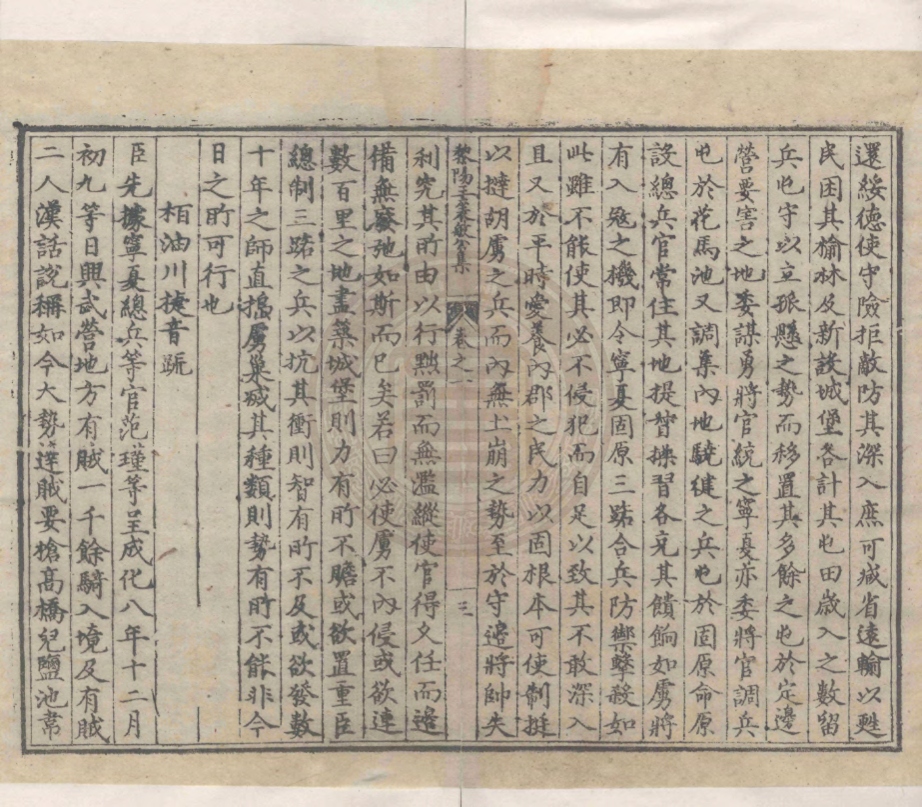 還綏德使守險拒敵防其深入庶可减省遠輸以甦
民困其榆林及新設城堡各計其屯田歲入之數留
兵屯守以立孤懸之勢而移置其多餘之屯於定邊
營要害之地委謀勇將官統之寧夏亦委將官調兵
屯於花馬池又調集內地驍健之兵屯於固原命原
設總兵官常住其地提督操習各充其饋餉如虜將
有入寇之機即令寧夏固原三路合兵防禦擊殺如
此雖不能使其必不侵犯而自足以致其不敢深入
且又於平時愛養內郡之民力以固根本可使制挺
以撻胡虜之兵而內無土崩之勢至於守邊將帥失
黎陽王襄敏公集 卷之一 三
利究其所由以行黜罰而無濫縱使官得久任而邊
備無廢弛如斯而已矣若曰必使虜不內侵或欲連
數百里之地盡築城堡則力有所不贍或欲置重臣
總制三路之兵以抗其衝則智有所不及或欲發數
十年之師直搗虜巢碱其種類則勢有所不能非今
日之所可行也
栢油川捷音疏
臣先據寧夏總兵等官范瑾等呈成化八年十二月
初九等日興武營地方有賊一千餘騎入境及有賊
二人漢話說稱如今大勢達賊要搶高橋兒鹽池韋